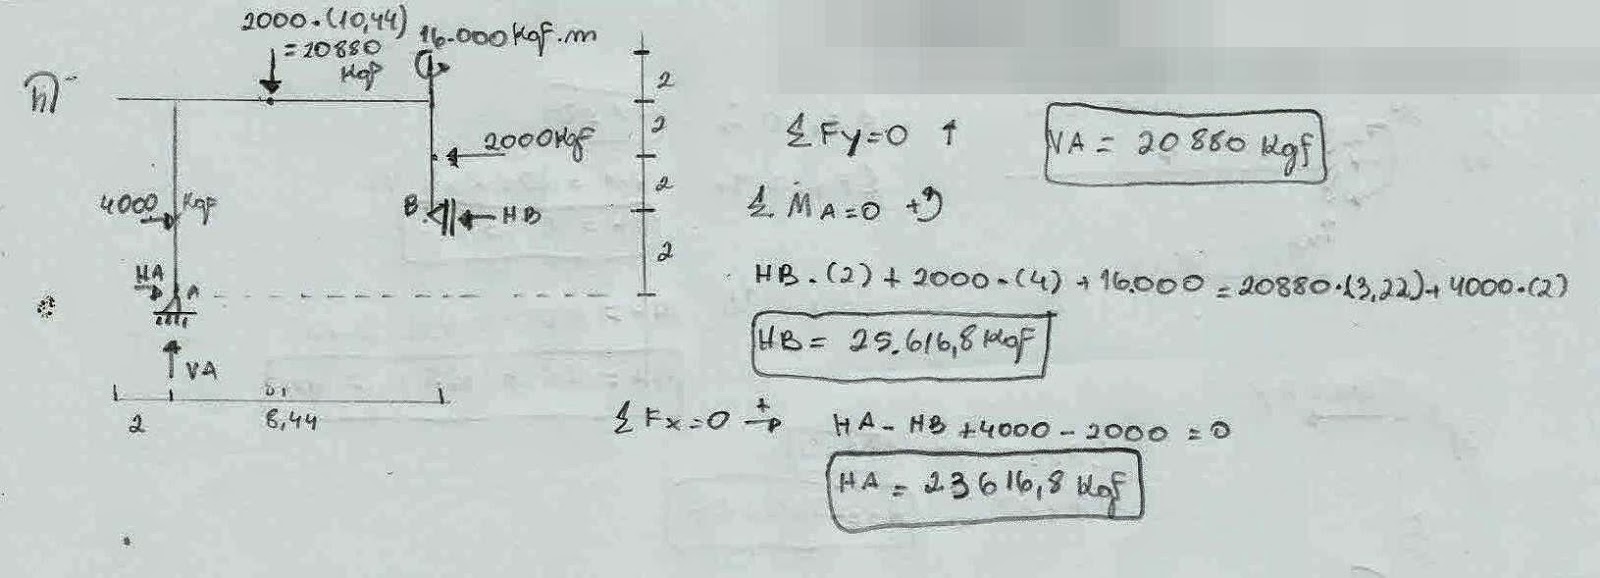 2000.(10,44)
= 20880
Kgf
16.000 Kgf.m
2
2
2000 Kgf
2
4000 Kgf
B
HB
2
HA
A
VA
2
8,44
ΣFy=0 ↑
VA = 20880 Kgf
ΣMA=0 +
HB.(2) + 2000.(4) + 16.000 = 20880.(3,22) + 4000.(2)
HB = 25.616,8 Kgf
ΣFx=0 + →
HA - HB + 4000 - 2000 = 0
HA = 23616,8 Kgf